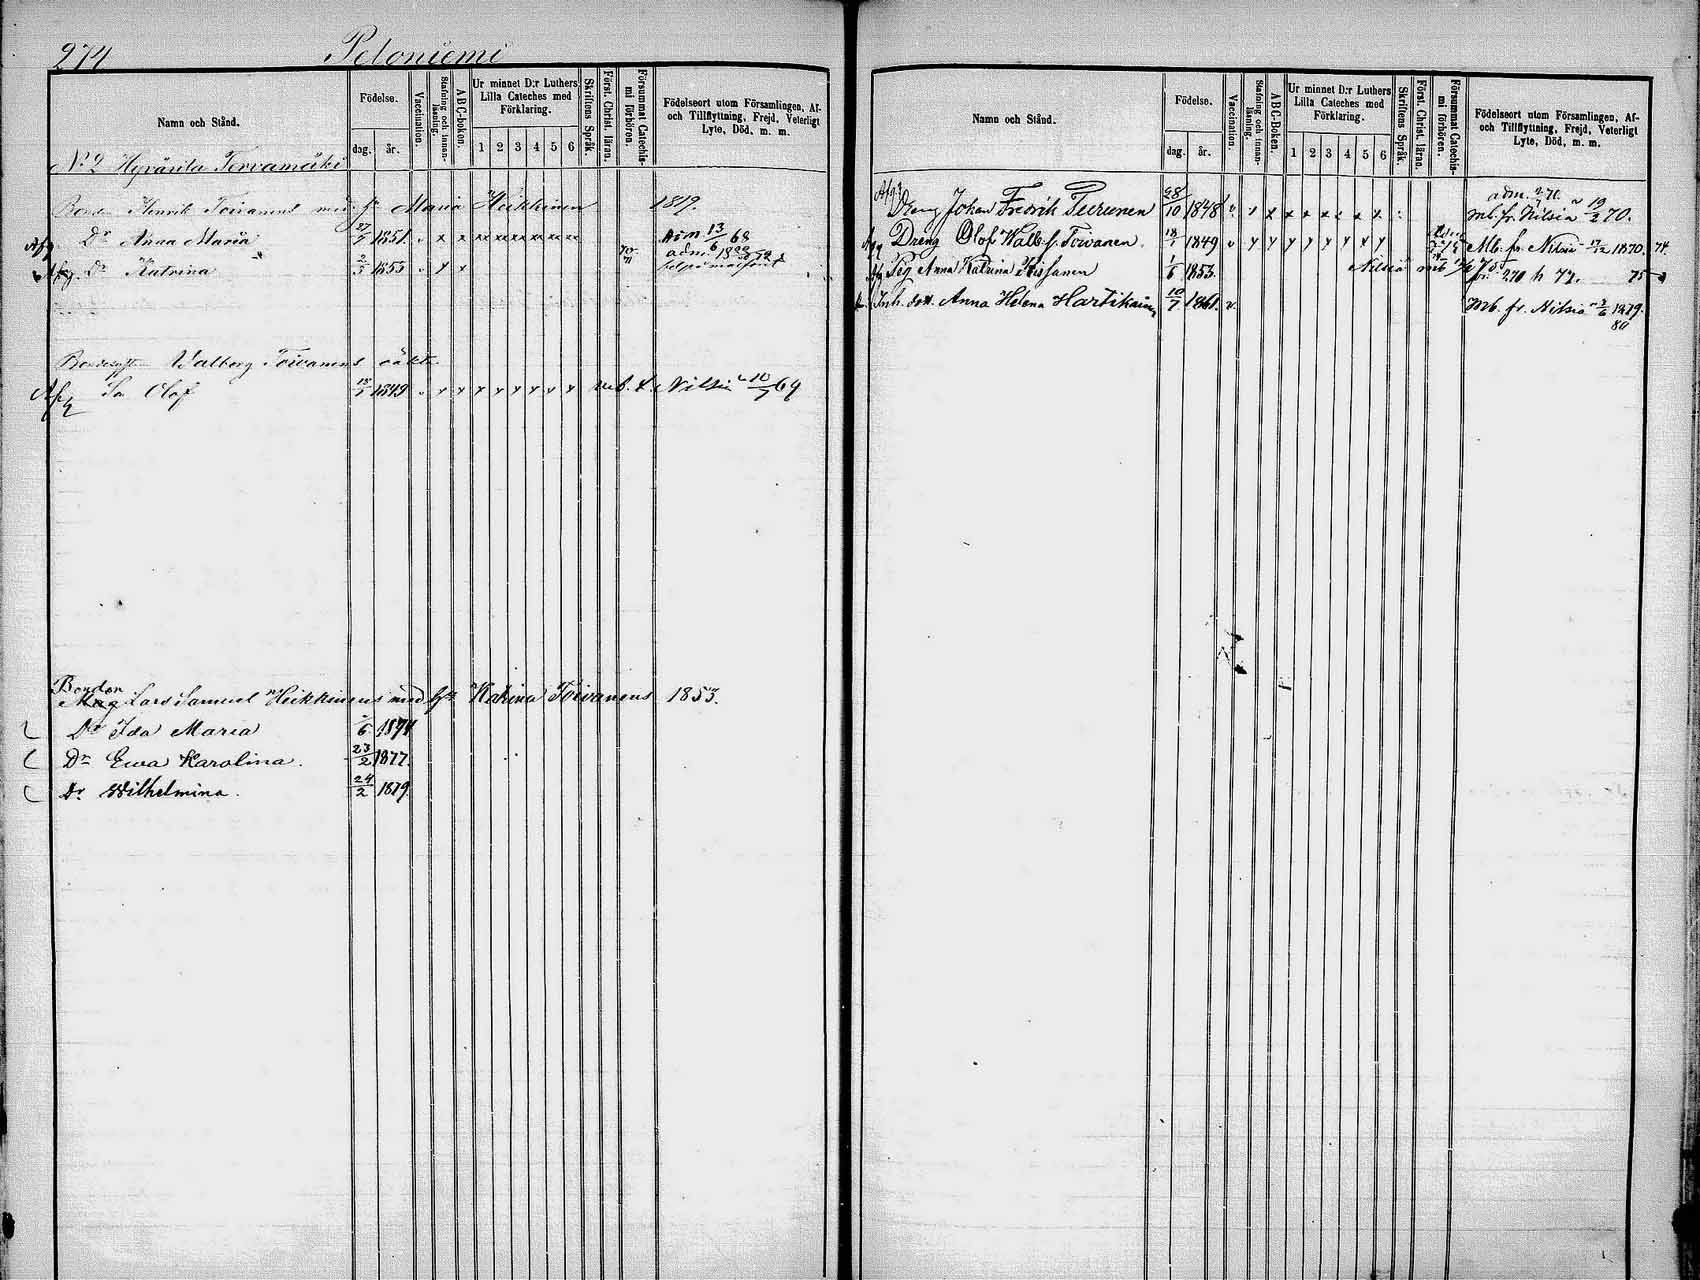 274 Peloniemi
Namn och Stånd.
Födelse.
dag. år.
Vaccination.
Stafning och innanläsning.
ABC-boken.
Ur minnet D:r Luthers Lilla Cateches med Förklaring.
1 2 3 4 5 6
Skriftens Språk.
Först. Christ. läran.
Försummat Catechismi förhören.
Födelseort utom Församlingen, Af- och Tillflyttning, Frejd, Veterligt Lyte, Död, m. m.
No 2 Hyvärilä Tervamäki
Henrik Toivanens med Maria Heikkinen 1819.
Afg Dr Anna Maria 27/7 1851. v x x x x x x x x Adm 13/6 68
Afg Dr Katrina 2/5 1855 v x x
Walborg Toivanens oäkta
Afg Sn Olof 18/7 1849 v x x x x x x x x mb. t. Nilsiä 10/7 69
Bonden
Lars Samuel Heikkinens med hu Katrina Toivanens 1853.
Dr Ida Maria 6 1874
Dr Ewa Karolina. 23/2 1877.
Dr Wilhelmina. 24/2 1879.
Namn och Stånd.
Födelse.
dag. år.
Vaccination.
Stafning och innanläsning.
ABC-Boken.
Ur minnet D:r Luthers Lilla Cateches med Förklaring.
1 2 3 4 5 6
Skriftens Språk.
Först. Christ. läran.
Försummat Catechismi förhören.
Födelseort utom Församlingen, Af- och Tillflyttning, Frejd, Veterligt Lyte, Död, m. m.
Afg Dreng Johan Fredrik Teerunen 28/10 1848 v x x x x x x x x mb. fr. Nilsiä 19/2 70.
Afg Dreng Olof Walb. s. Toivanen. 18/7 1849 v x x x x x x x x Mb. fr. Nilsiä 17/12 1870. 74
Afg Pig Anna Katrina 1/6 1853. Nilsiä mb 75
Inh. dott. Anna Helena Hartikainen 10/7 1861. v. Mb. fr. Nilsiä 3/6 1879.
80